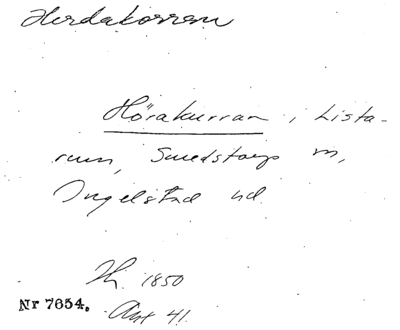 Herdakorran
Hörakurran, i Lista-
rum, Smedstorps sn,
Ingelstad hd.
Th. 1850
Nr 7654. Ant 41.